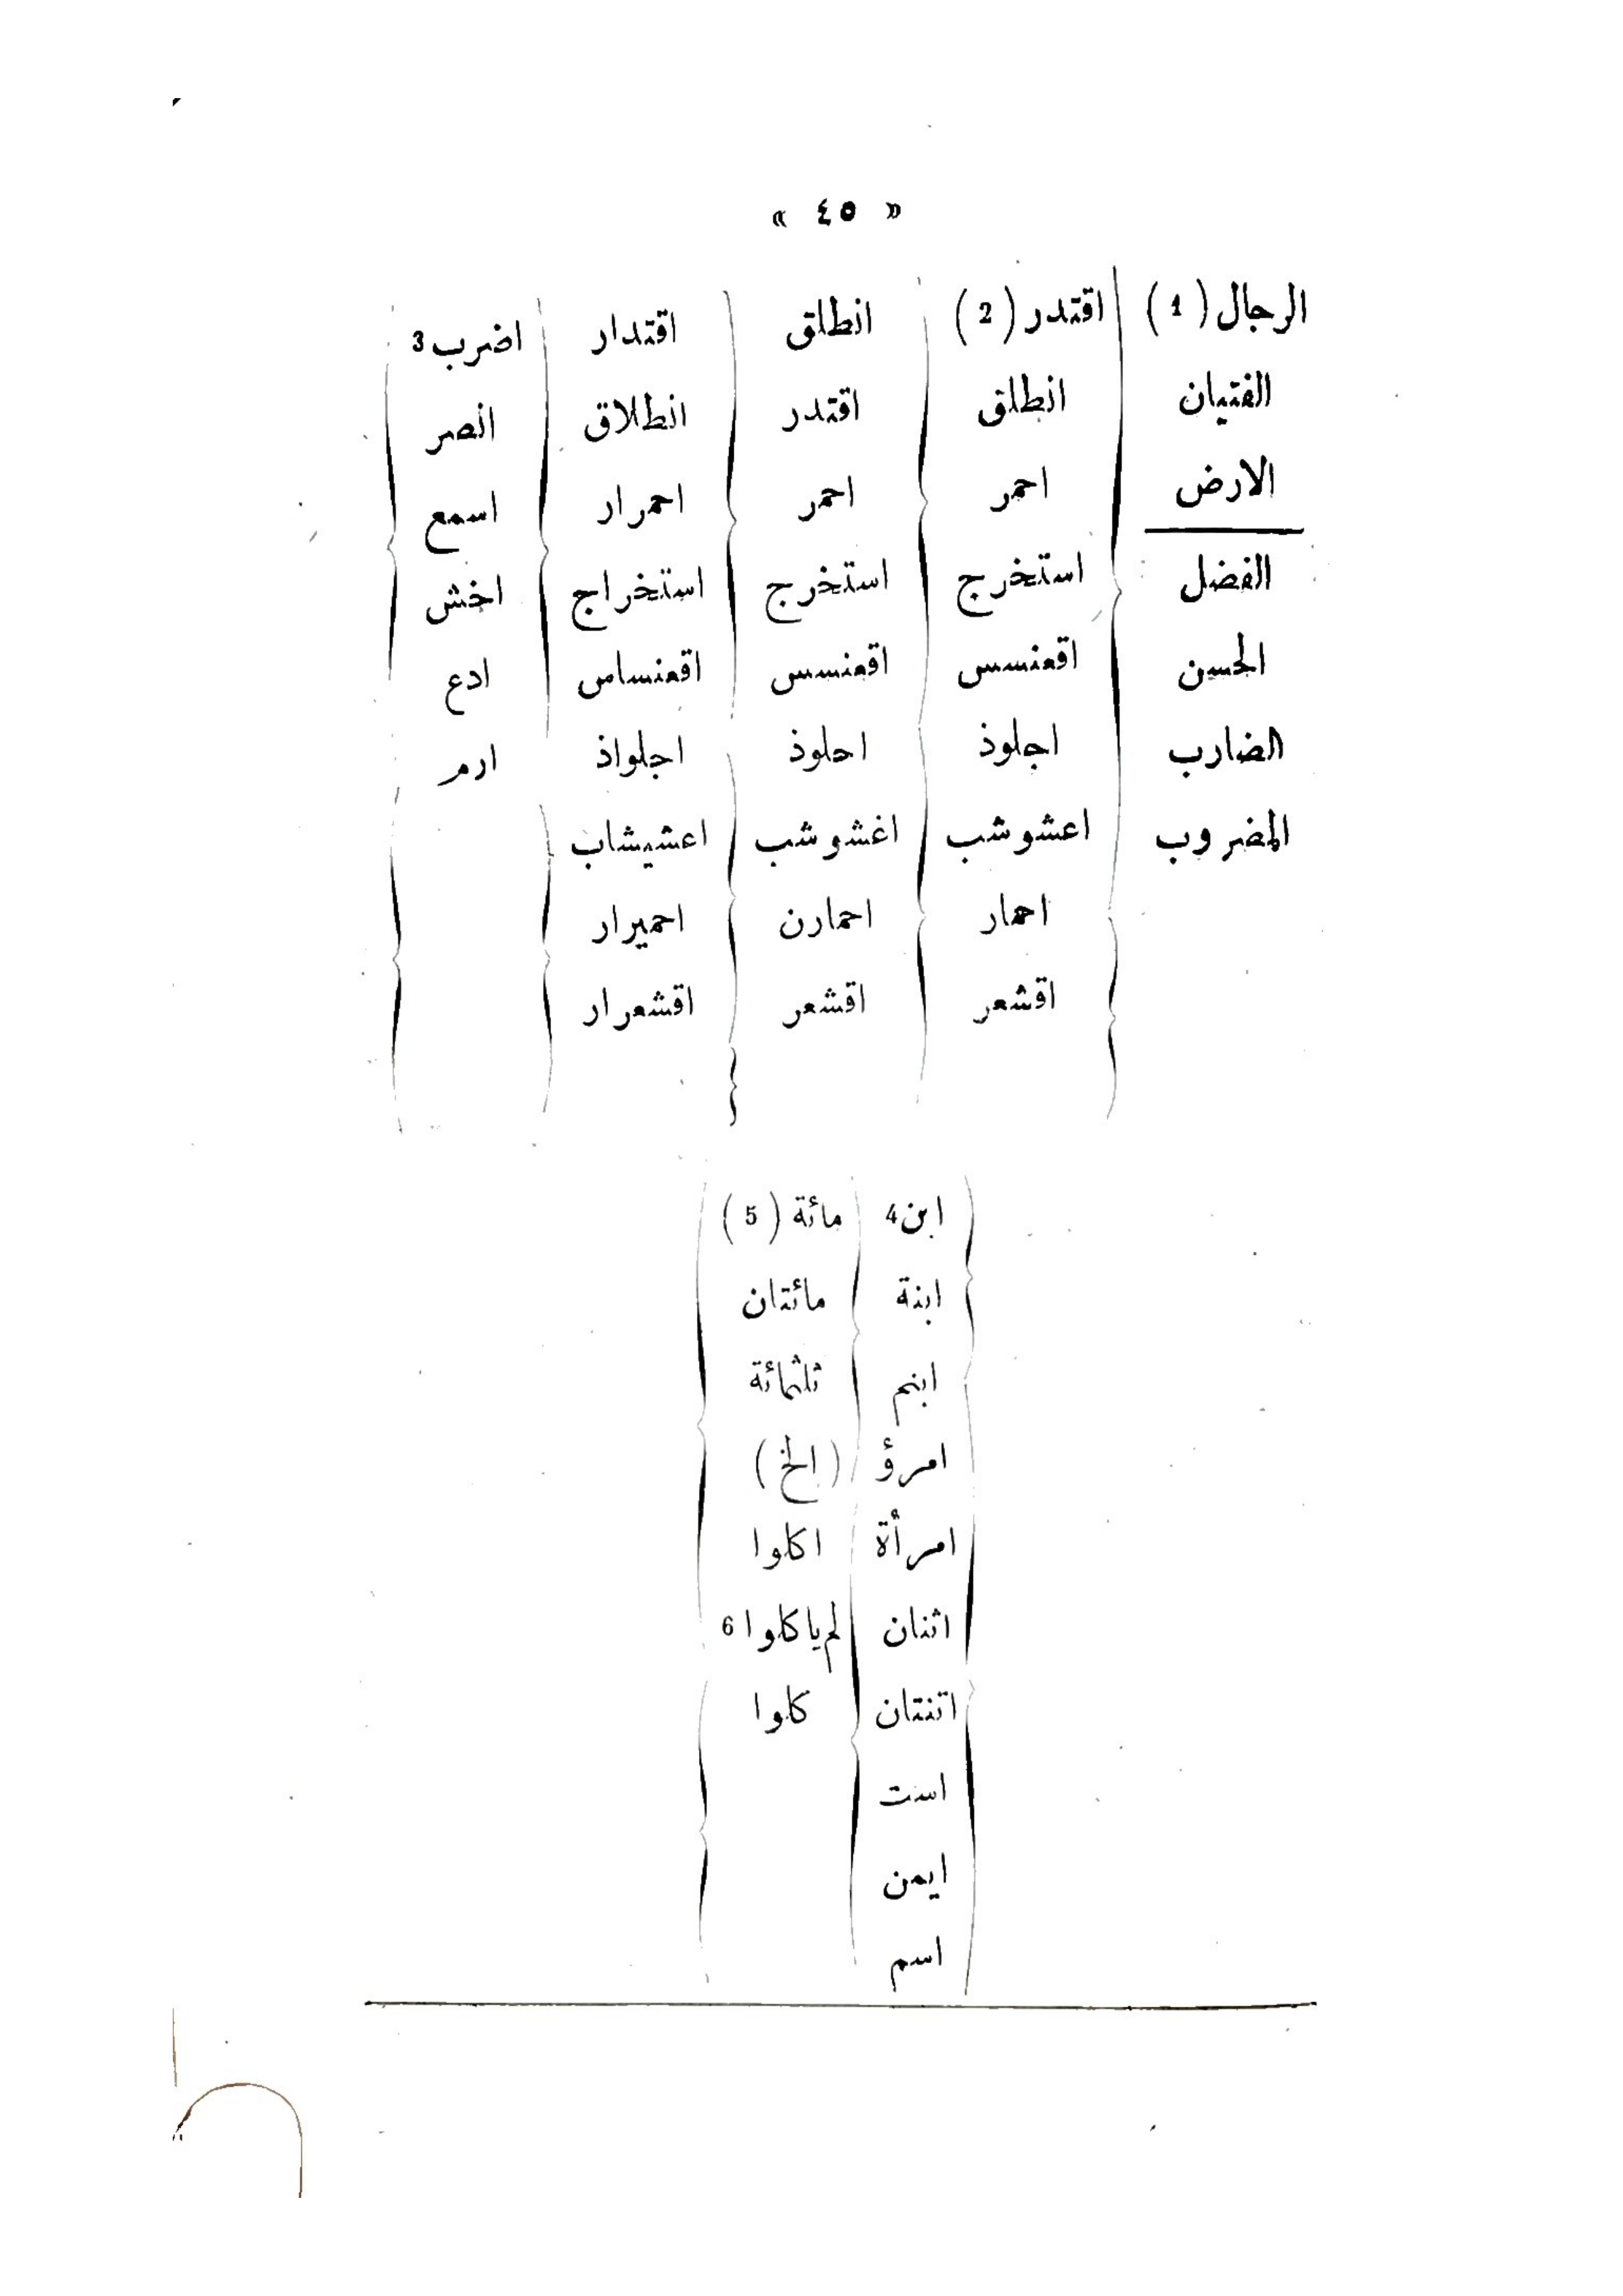 « ٤٥ »
الرجال (1) اقتدر (2) انطلق اقتدار اضرب 3
الفتيان انطلق اقتدر انطلاق انصر
الارض احمر احمر احمرار اسمع
الفضل استخرج استخرج استخراج اخش
الحسن اقعنسس اقعنسس اقعنساس ادع
الضارب اجلوذ احلوذ اجلواذ ارم
المضروب اعشوشب اغشوشب اعشيشاب
احمار احمارن احميرار
اقشعر اقشعر اقشعرار
ابن 4 مائة (5)
ابنة مائتان
ابنم ثلثمائة
امرؤ (الخ)
امرأة اكلوا
اثنان لم ياكلوا 6
اتنتان كلوا
است
ايمن
اسم